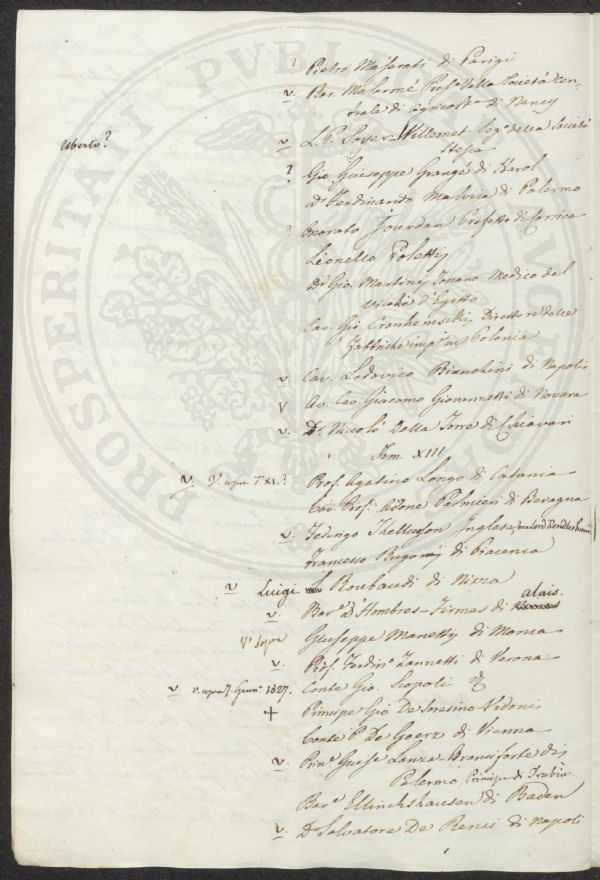 ? Pietro Maserati di Parigi
v. Bar. Malarmé Prof.e della Società Cen-
trale di Agricolt.a di Nancy
Uberto? v L. P. Soyer-Willemet Seg.o della Società
Stessa
? Gio. Giuseppe Grangé di Harol
D.r Ferdinando Malvica di Palermo
? Onorato Jourdan Prefetto di Corsica
Lionello Poletti
D.r Gio. Martini Toscano Medico del
Vicerè d'Egitto
Cav. Gio Cronhemschi Direttore delle
Fabbriche imp. in Polonia
v Cav. Lodovico Bianchini di Napoli
v Av. Cav. Giacomo Giovannetti di Novara
v. D.r Niccolò Della Torre di Chiavari
Tom. XIII
v V. sopra T. XV.? Prof. Agatino Longo di Catania
Cav. Prof. Adone Palmieri di Bevagna
v. Federigo Thellusson Inglese, ora Lord Rendlesham
Francesco Rugoni di Piacenza
v Luigi Roubaudi di Nizza
v. Bar.e D'Hombres-Firmas di Alais.
V.i Sopra Giuseppe Manetti di Monza
v. Prof. Ferdin.o Zannetti di Verona
v v. sopra 7. Genn.o 1827. Conte Gio. Scopoli
+ Principe Gio De Soresina Vidoni
Conte P. De Goerz di Vienna
v. Prin.e Gius.e Lanza-Branciforte di
Palermo, Principe di Trabia.
Bar.e Ellrichshausen di Baden
v. D. Salvatore De Renzi di Napoli
PROSPERITATI PUBLICAE AUGENDAE